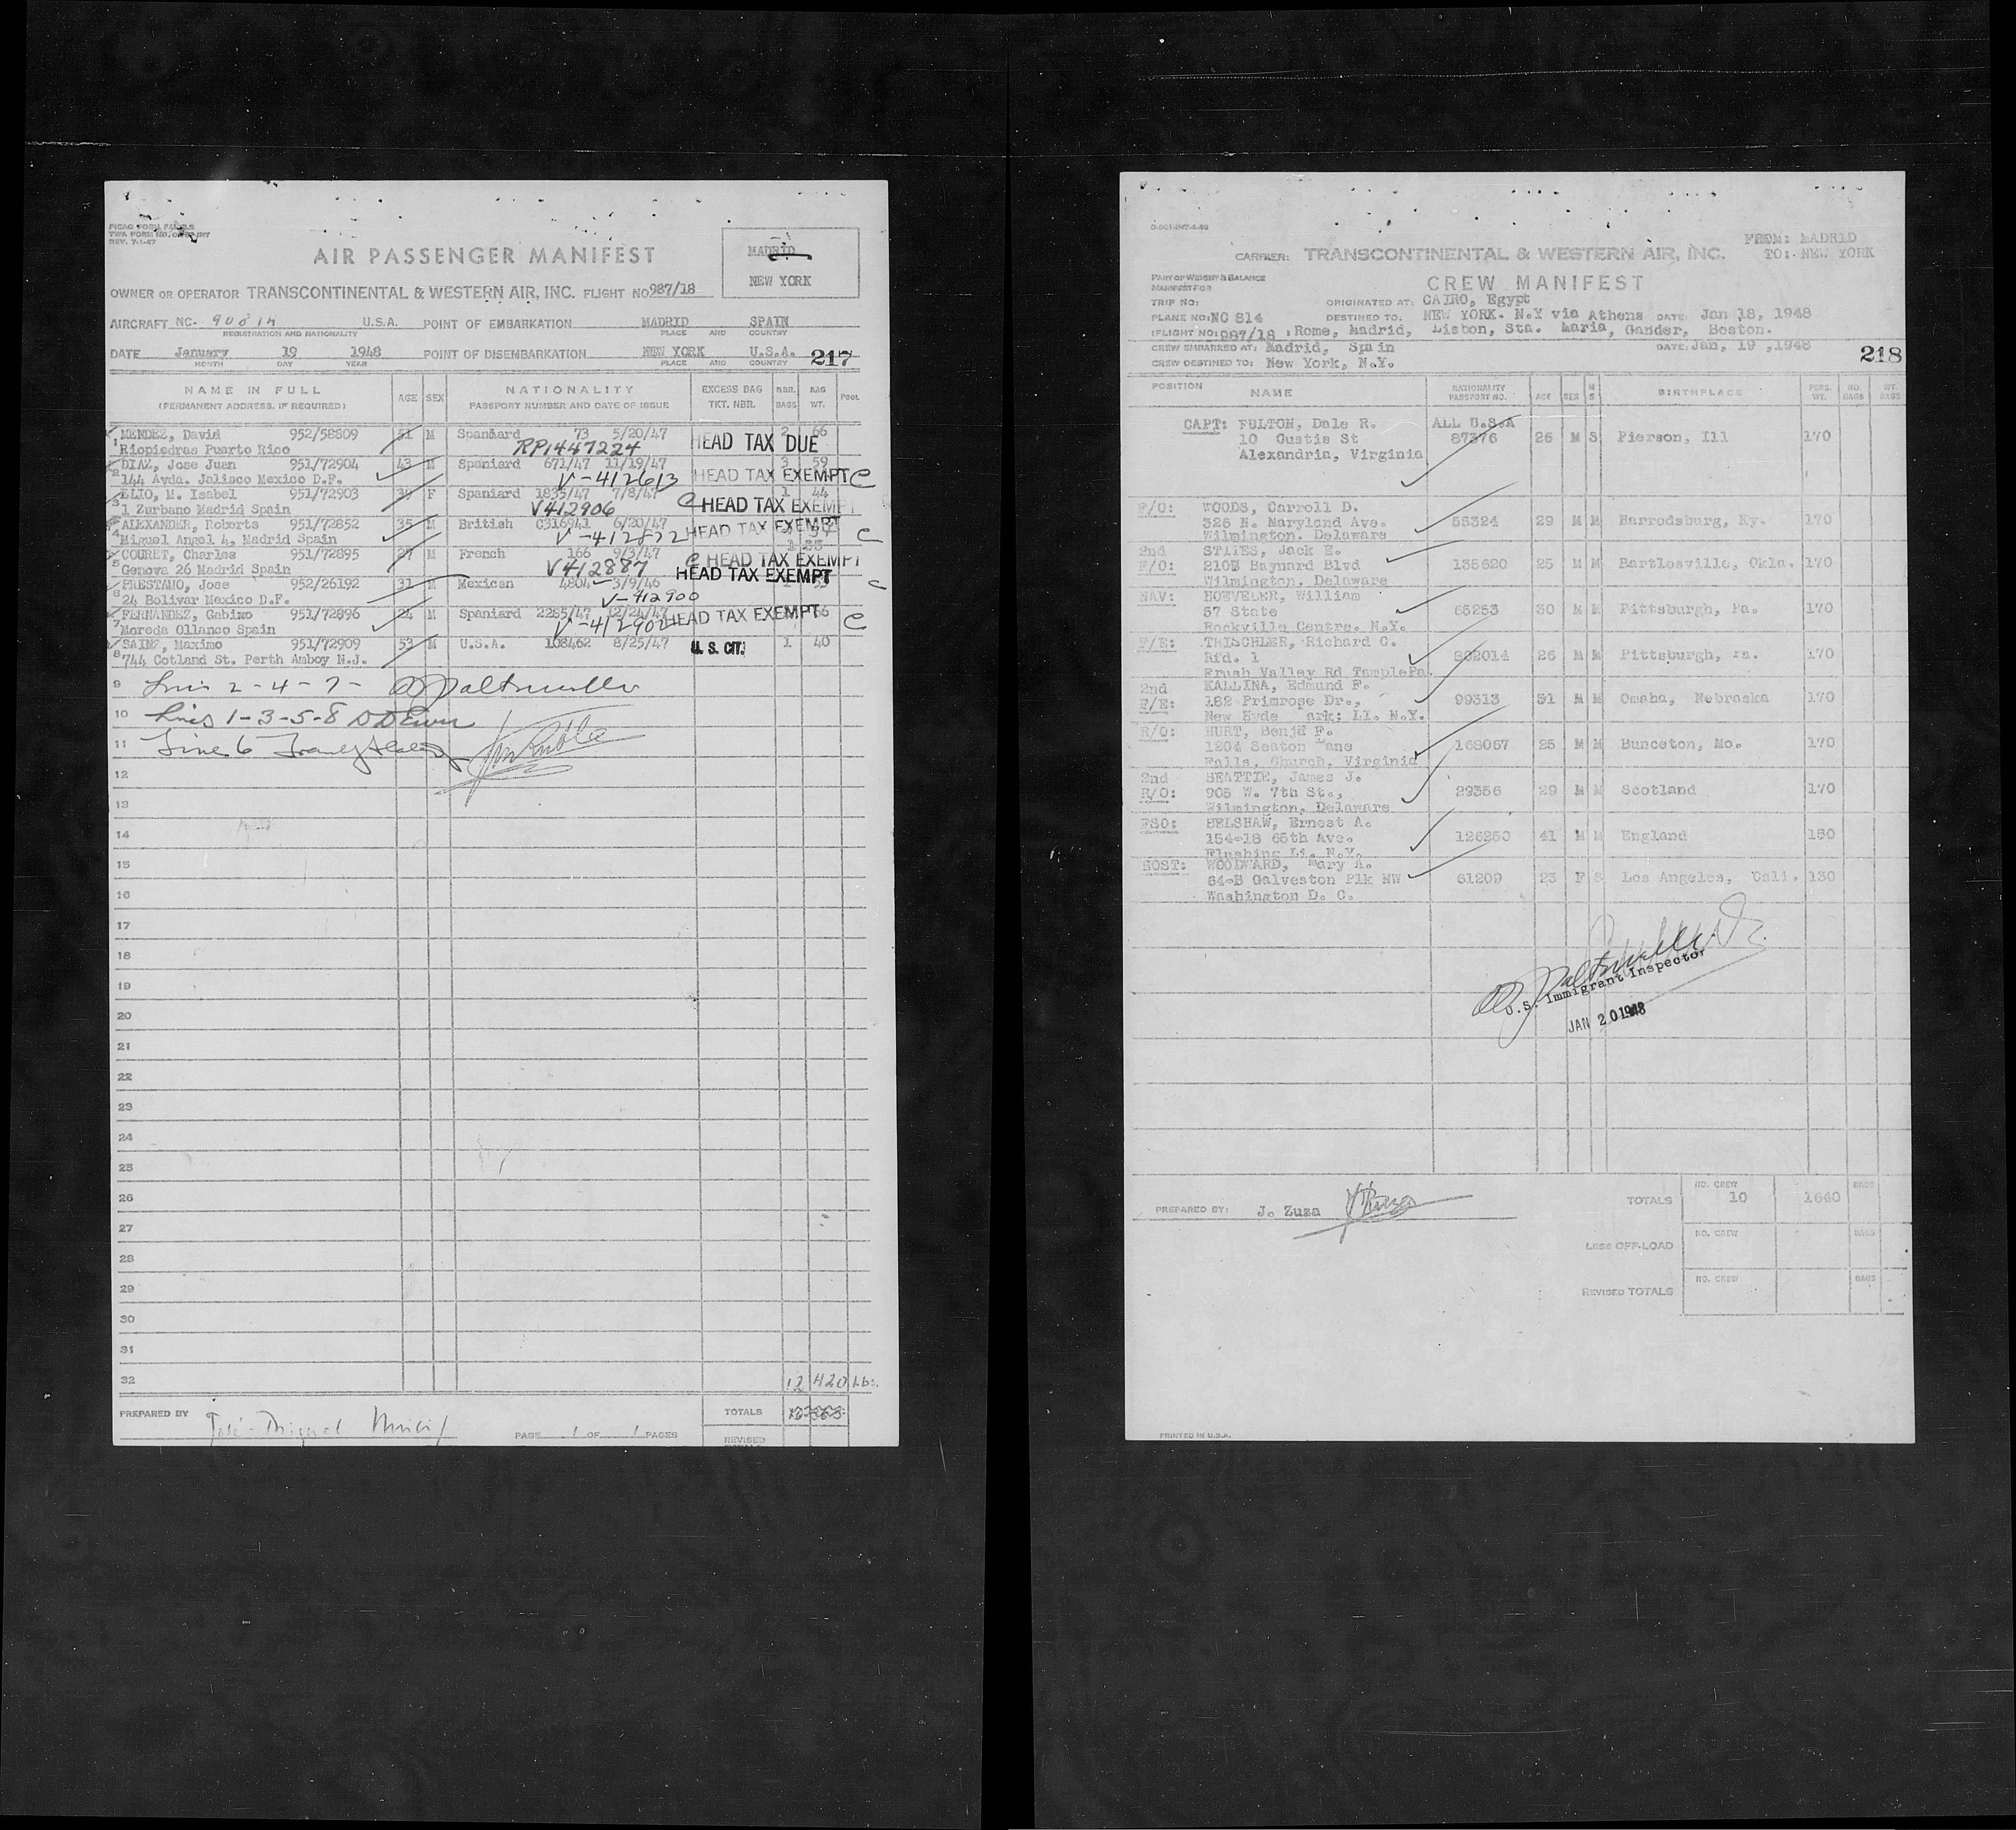 AIR PASSENGER MANIFEST
MADRID
NEW YORK
OWNER OR OPERATOR TRANSCONTINENTAL & WESTERN AIR, INC. FLIGHT NO 987/18
AIRCRAFT NC. U.S.A. POINT OF EMBARKATION MADRID SPAIN
REGISTRATION AND NATIONALITY PLACE AND COUNTRY
DATE January 19 1948 POINT OF DISEMBARKATION NEW YORK U.S.A. 217
MONTH DAY YEAR PLACE AND COUNTRY
NAME IN FULL AGE SEX NATIONALITY EXCESS BAG NBR. BAG Pool
(PERMANENT ADDRESS, IF REQUIRED) PASSPORT NUMBER AND DATE OF ISSUE TKT. NBR. BAGS WT.
1 MENDEZ, David 952/58809 51 M Spaniard 73 5/20/47 2 66
Riopiedras Puerto Rico RP1447224 HEAD TAX DUE
2 DIAZ, Jose Juan 951/72904 43 M Spaniard 671/47 11/19/47 3 59
144 Avda. Jalisco Mexico D.F. V-412613 HEAD TAX EXEMPT C
3 ELIO, M. Isabel 951/72903 39 F Spaniard 1835/47 7/8/47 1 44
1 Zurbano Madrid Spain V412906 C HEAD TAX EXEMPT
4 ALEXANDER, Roberts 951/72852 35 M British C316941 6/20/47
Miguel Angel 4, Madrid Spain V-412872 HEAD TAX EXEMPT C
5 COURET, Charles 951/72895 27 M French 166 9/3/47
Genova 26 Madrid Spain V412887 C HEAD TAX EXEMPT
6 PRESTAMO, Jose 952/26192 31 M Mexican 4804 3/9/46 HEAD TAX EXEMPT C
24 Bolivar Mexico D.F. V-412900
7 FERNANDEZ, Gabino 951/72896 24 M Spaniard 2285/47 12/24/47 HEAD TAX EXEMPT 66 C
Moreda Ollanco Spain V-412902
8 SAINZ, Maximo 951/72909 53 M U.S.A. 108462 8/25/47 U. S. CIT. 1 40
744 Cotland St. Perth Amboy N.J.
9 Lines 2-4-7-
10 Lines 1-3-5-8
11 Line 6
12
13
14
15
16
17
18
19
20
21
22
23
24
25
26
27
28
29
30
31
32 12 420 Lbs.
PREPARED BY José Miguel TOTALS
PAGE 1 OF 1 PAGES REVISED
FROM: MADRID
CARRIER: TRANSCONTINENTAL & WESTERN AIR, INC. TO: NEW YORK
PART OF WEIGHT & BALANCE
MANIFEST FOR CREW MANIFEST
TRIP NO: ORIGINATED AT: CAIRO, Egypt
PLANE NO: NC 814 DESTINED TO. NEW YORK. N.Y via Athens DATE: Jan 18, 1948
(FLIGHT NO: 987/18 , Rome, Madrid, Lisbon, Sta. Maria, Gander, Boston.
CREW EMBARKED AT: Madrid, Spain DATE: Jan, 19 ,1948
CREW DESTINED TO: New York, N.Y. 218
POSITION NAME NATIONALITY PASSPORT NO. AGE SEX M S BIRTHPLACE PERS. WT. NO. BAGS WT. BAGS
CAPT: FULTON, Dale R. ALL U.S.A
10 Custis St 87376 26 M S Pierson, Ill 170
Alexandria, Virginia
F/O: WOODS, Carroll D.
326 N. Maryland Ave. 55324 29 M M Harrodsburg, Ky. 170
Wilmington, Delaware
2nd STITES, Jack E.
F/O: Baynard Blvd 135620 25 M M Bartlesville, Okla. 170
Wilmington, Delaware
NAV: HOEVELER, William
57 State 65253 30 M M Pittsburgh, Pa. 170
Rockville Centre. N.Y.
F/E: TRISCHLER, Richard C.
Rfd. 1 26 M M Pittsburgh, Pa. 170
Brush Valley Rd TamplePa.
2nd KALLINA, Edmund F.
F/E: 182 Primrose Dr., 99313 31 M M Omaha, Nebraska 170
New Hyde ark; LI. N.Y.
R/O: HURT, Benja F.
1204 Seaton ane 168067 25 M M Bunceton, Mo. 170
Falls, Church, Virginia
2nd BEATTIE, James J.
R/O: 905 W. 7th St., 29356 29 M M Scotland 170
Wilmington, Delaware
FSO: BELSHAW, Ernest A.
154-18 65th Ave. 126250 41 M M England 150
Flushing Li. N.Y.
HOST: WOODWARD, Mary A.
64-B Galveston Plk NW 61209 23 F S Los Angeles, Cali. 130
Washington D. C.
U.S. Immigrant Inspector
JAN 20 1948
NO. CREW BAGS
TOTALS 10 1640
PREPARED BY: J. Zuza
NO. CREW BAGS
LESS OFF-LOAD
NO. CREW BAGS
REVISED TOTALS
PRINTED IN U.S.A.